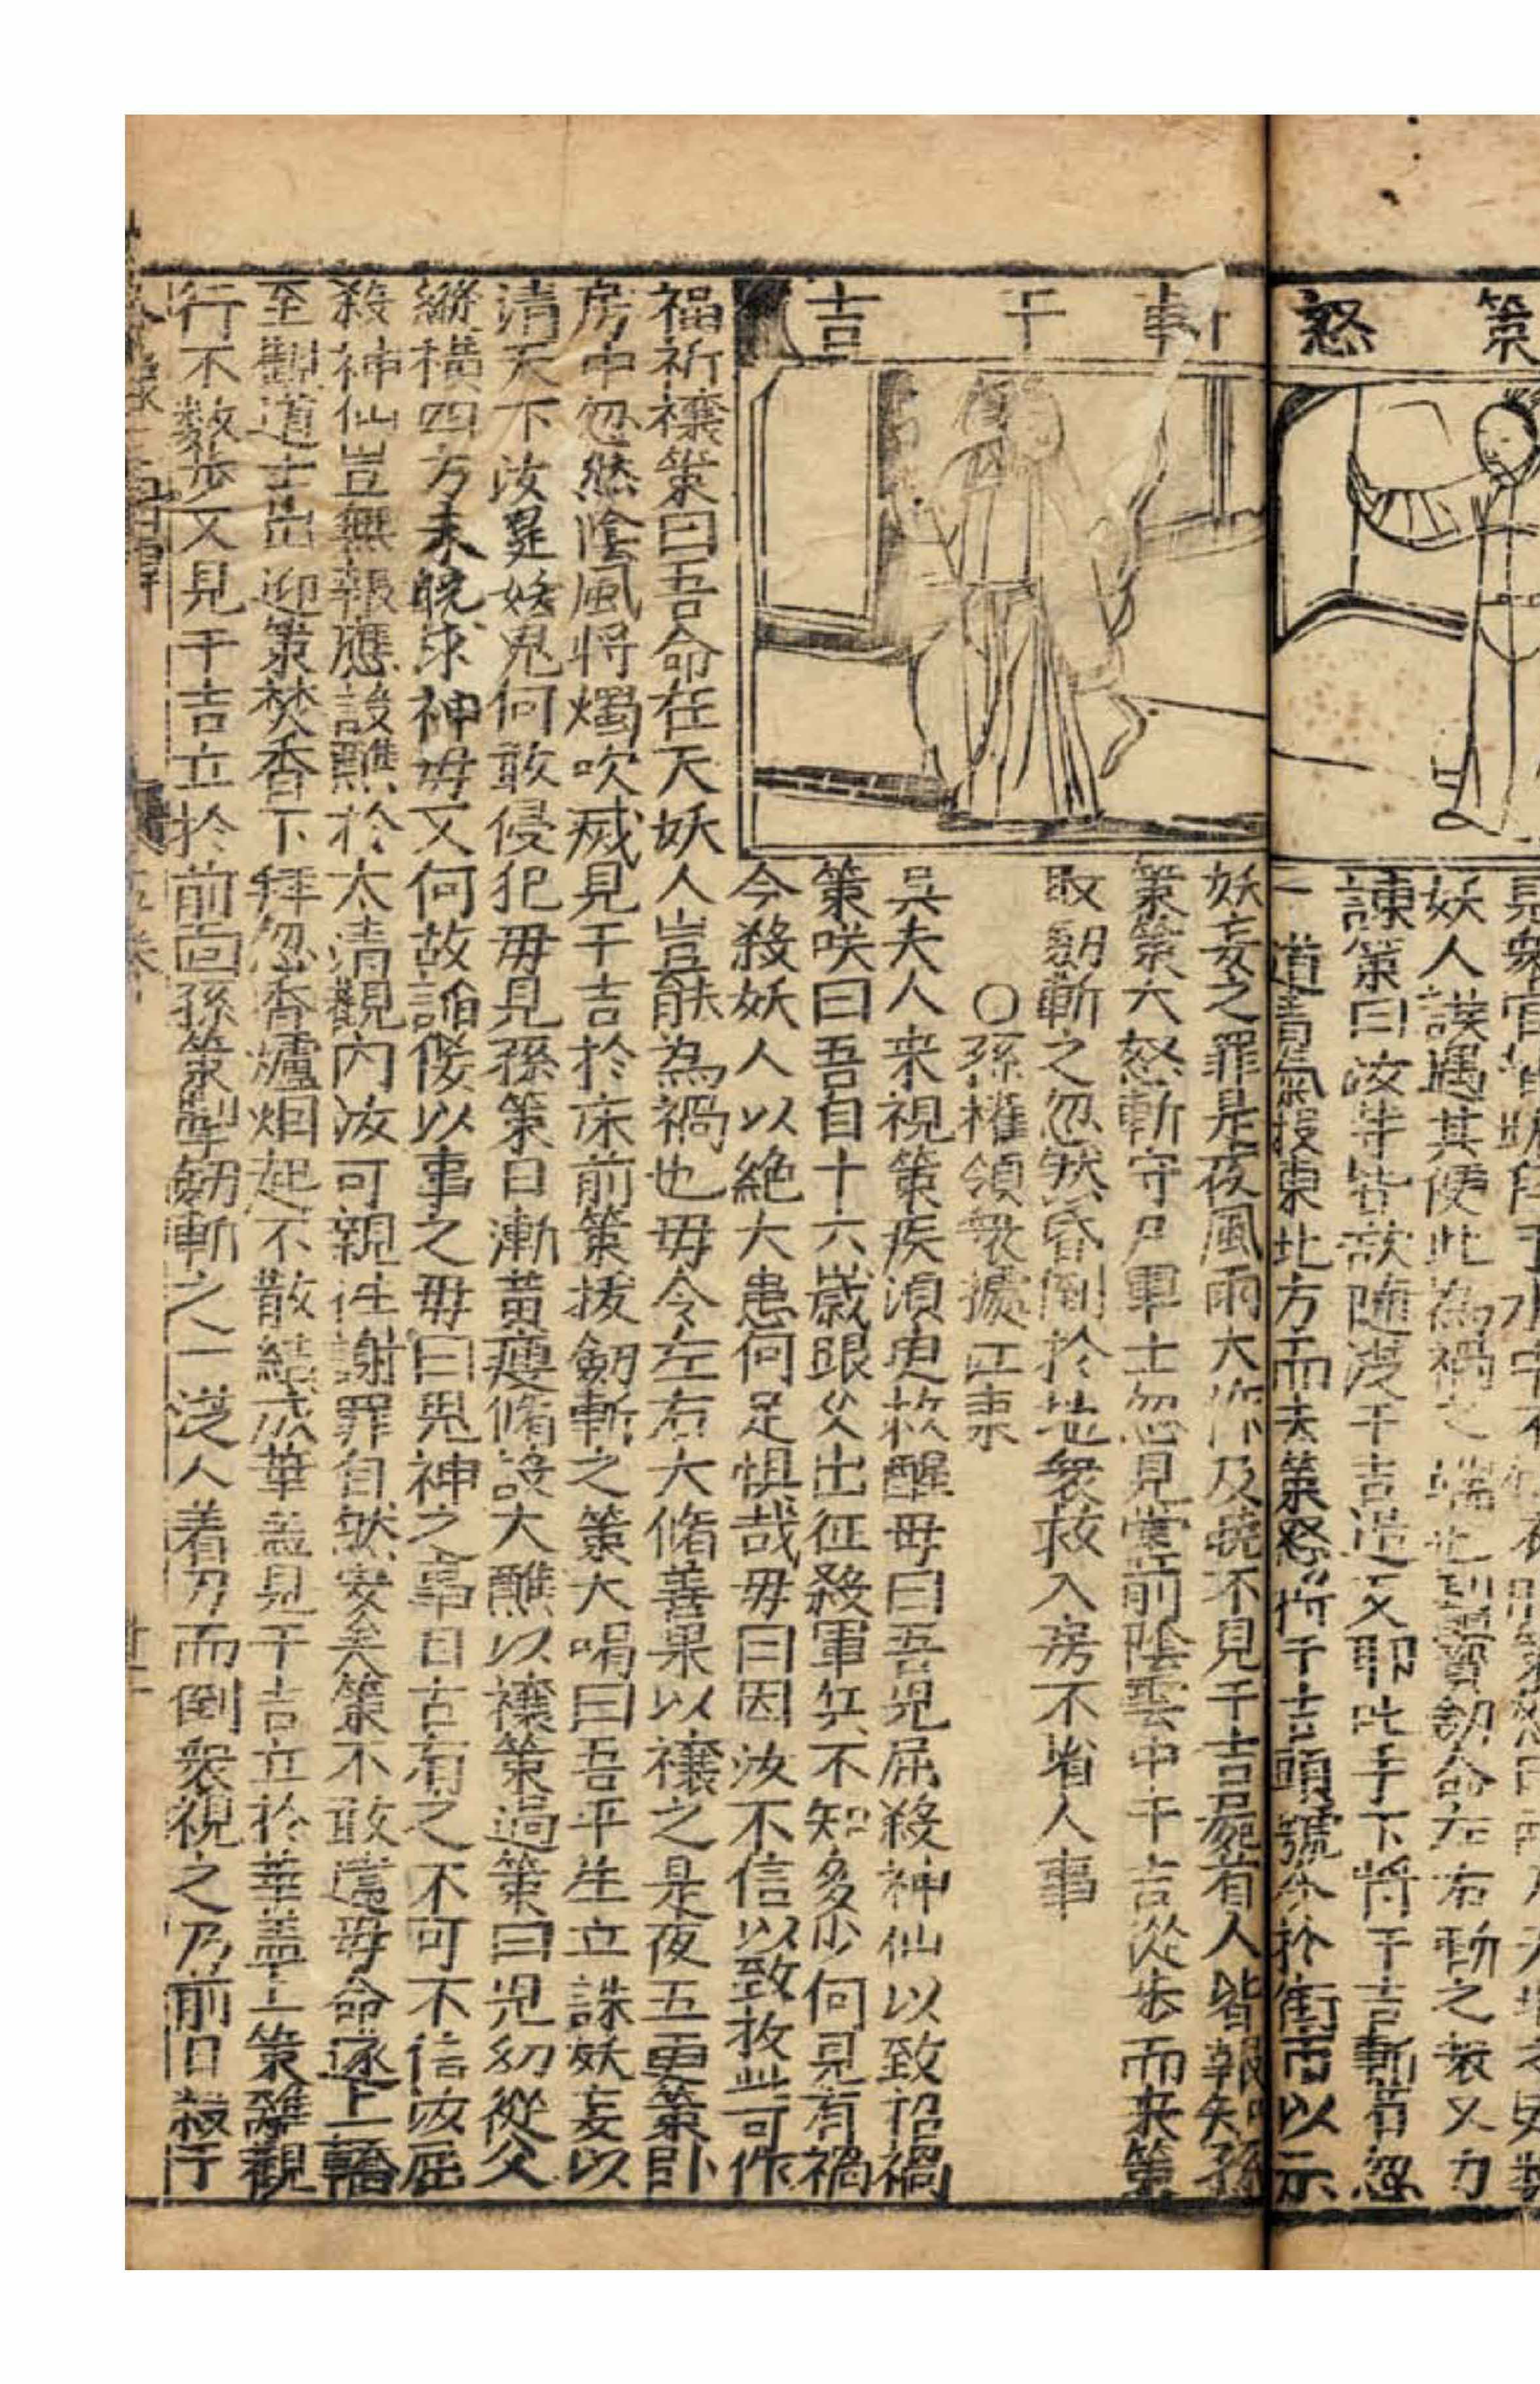 策怒
斬于吉
妖人誤遇其便此為禍之端也寶劒命左右斬之衆又力
諌策曰汝等皆欲随漢于吉造反耶叱手下将于吉斬着忽
一道青氣投東北方而去策怒斬于吉頭號令於街市以示
妖妄之罪是夜風雨大作及曉不見于吉屍有人皆報知孫
策策大怒斬守尸軍士忽見堂前陰雲中于吉從步而来策
取劒斬之忽然昏倒扵地衆救入房不省人事
〇孫權領衆據江東
吳夫人来視策疾湏臾救醒母曰吾児屈殺神仙以致招禍
策咲曰吾自十六歲跟父出征殺軍兵不知多少何見有禍
今殺妖人以絶大患何足惧哉毋曰因汝不信以致此可作
福祈禳策曰吾命在天妖人豈能為禍也毋令左右大脩善果以禳之是夜五更策卧
房中忽然陰風将燭吹滅見于吉於床前策拔劒斬之策大喝曰吾平生立誅妖妄以
清天下汝是妖鬼何敢侵犯毋見孫策日漸黃瘦脩設大醮以禳策過策曰児幼從父
縱橫四方未皖求神毋又何故諂佞以事之毋曰鬼神之事自古有之不可不信汝屈
殺神仙豈無報應設醮扵太清觀内汝可親往謝罪自然安矣策不敢違毋命遂上轎
至觀道士出迎策焚香下拜忽香爐烟起不散結成華盖見于吉立扵華盖上策離觀
行不数步又見于吉立扵前面孫策掣劒斬之一從人着刃而倒衆視之乃前日殺于